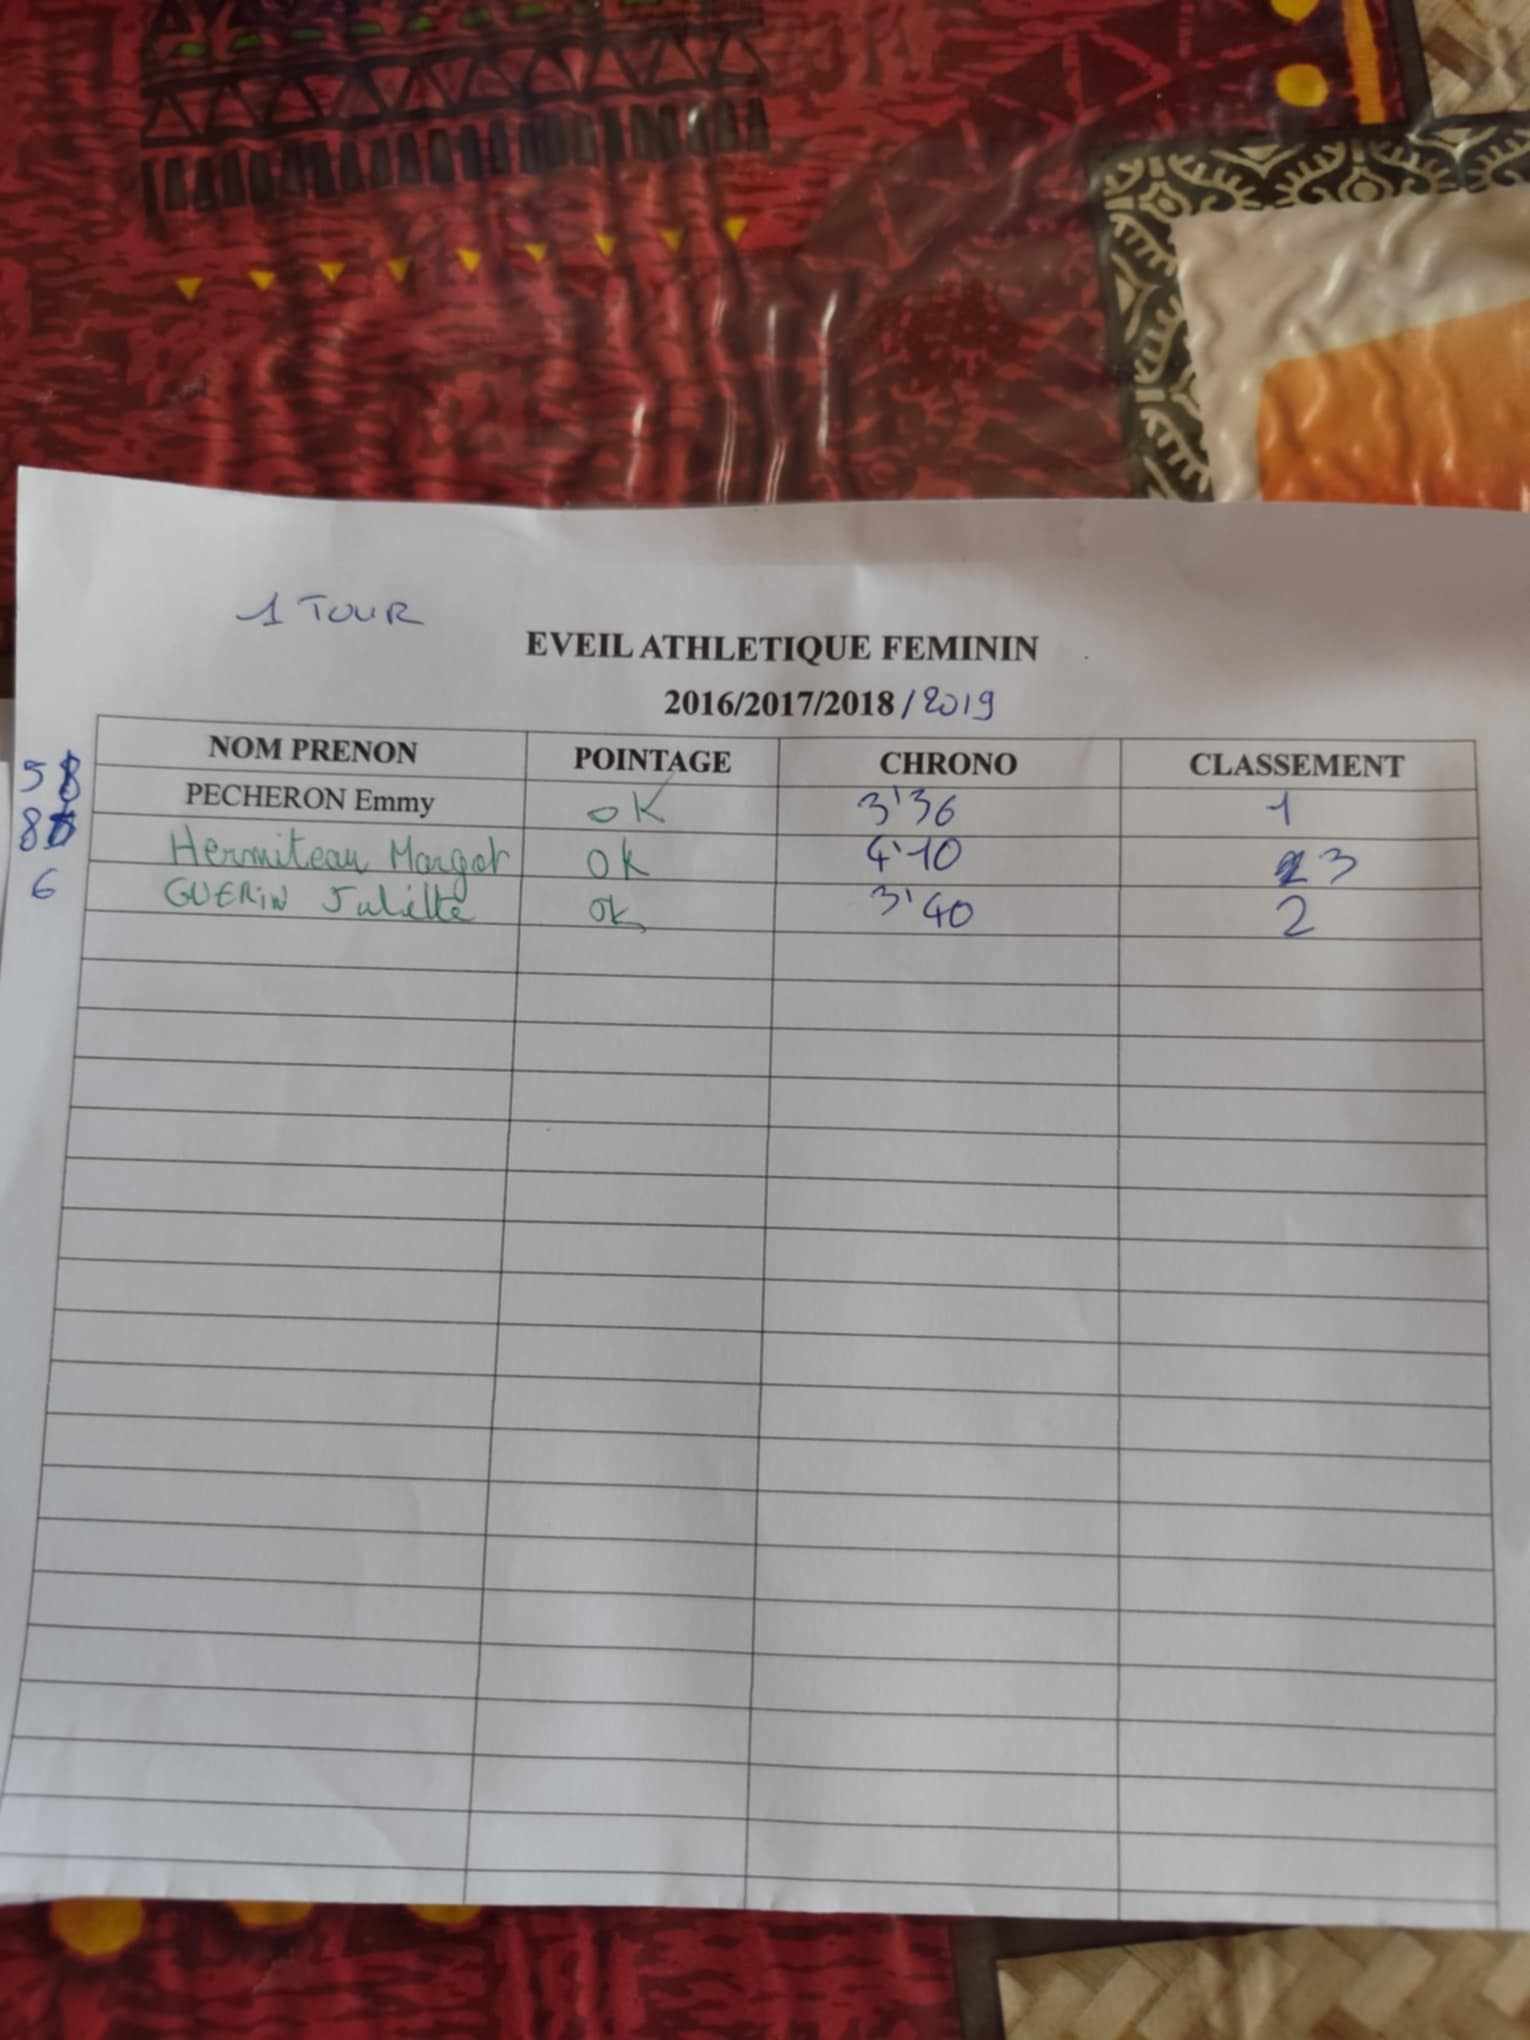 1 TOUR
EVEIL ATHLETIQUE FEMININ
2016/2017/2018 / 2019
NOM PRENON POINTAGE CHRONO CLASSEMENT
5 PECHERON Emmy OK 3'36 1
8 Hermiteau Margot OK 4'10 3
6 GUERIN Juliette Ok 3'40 2